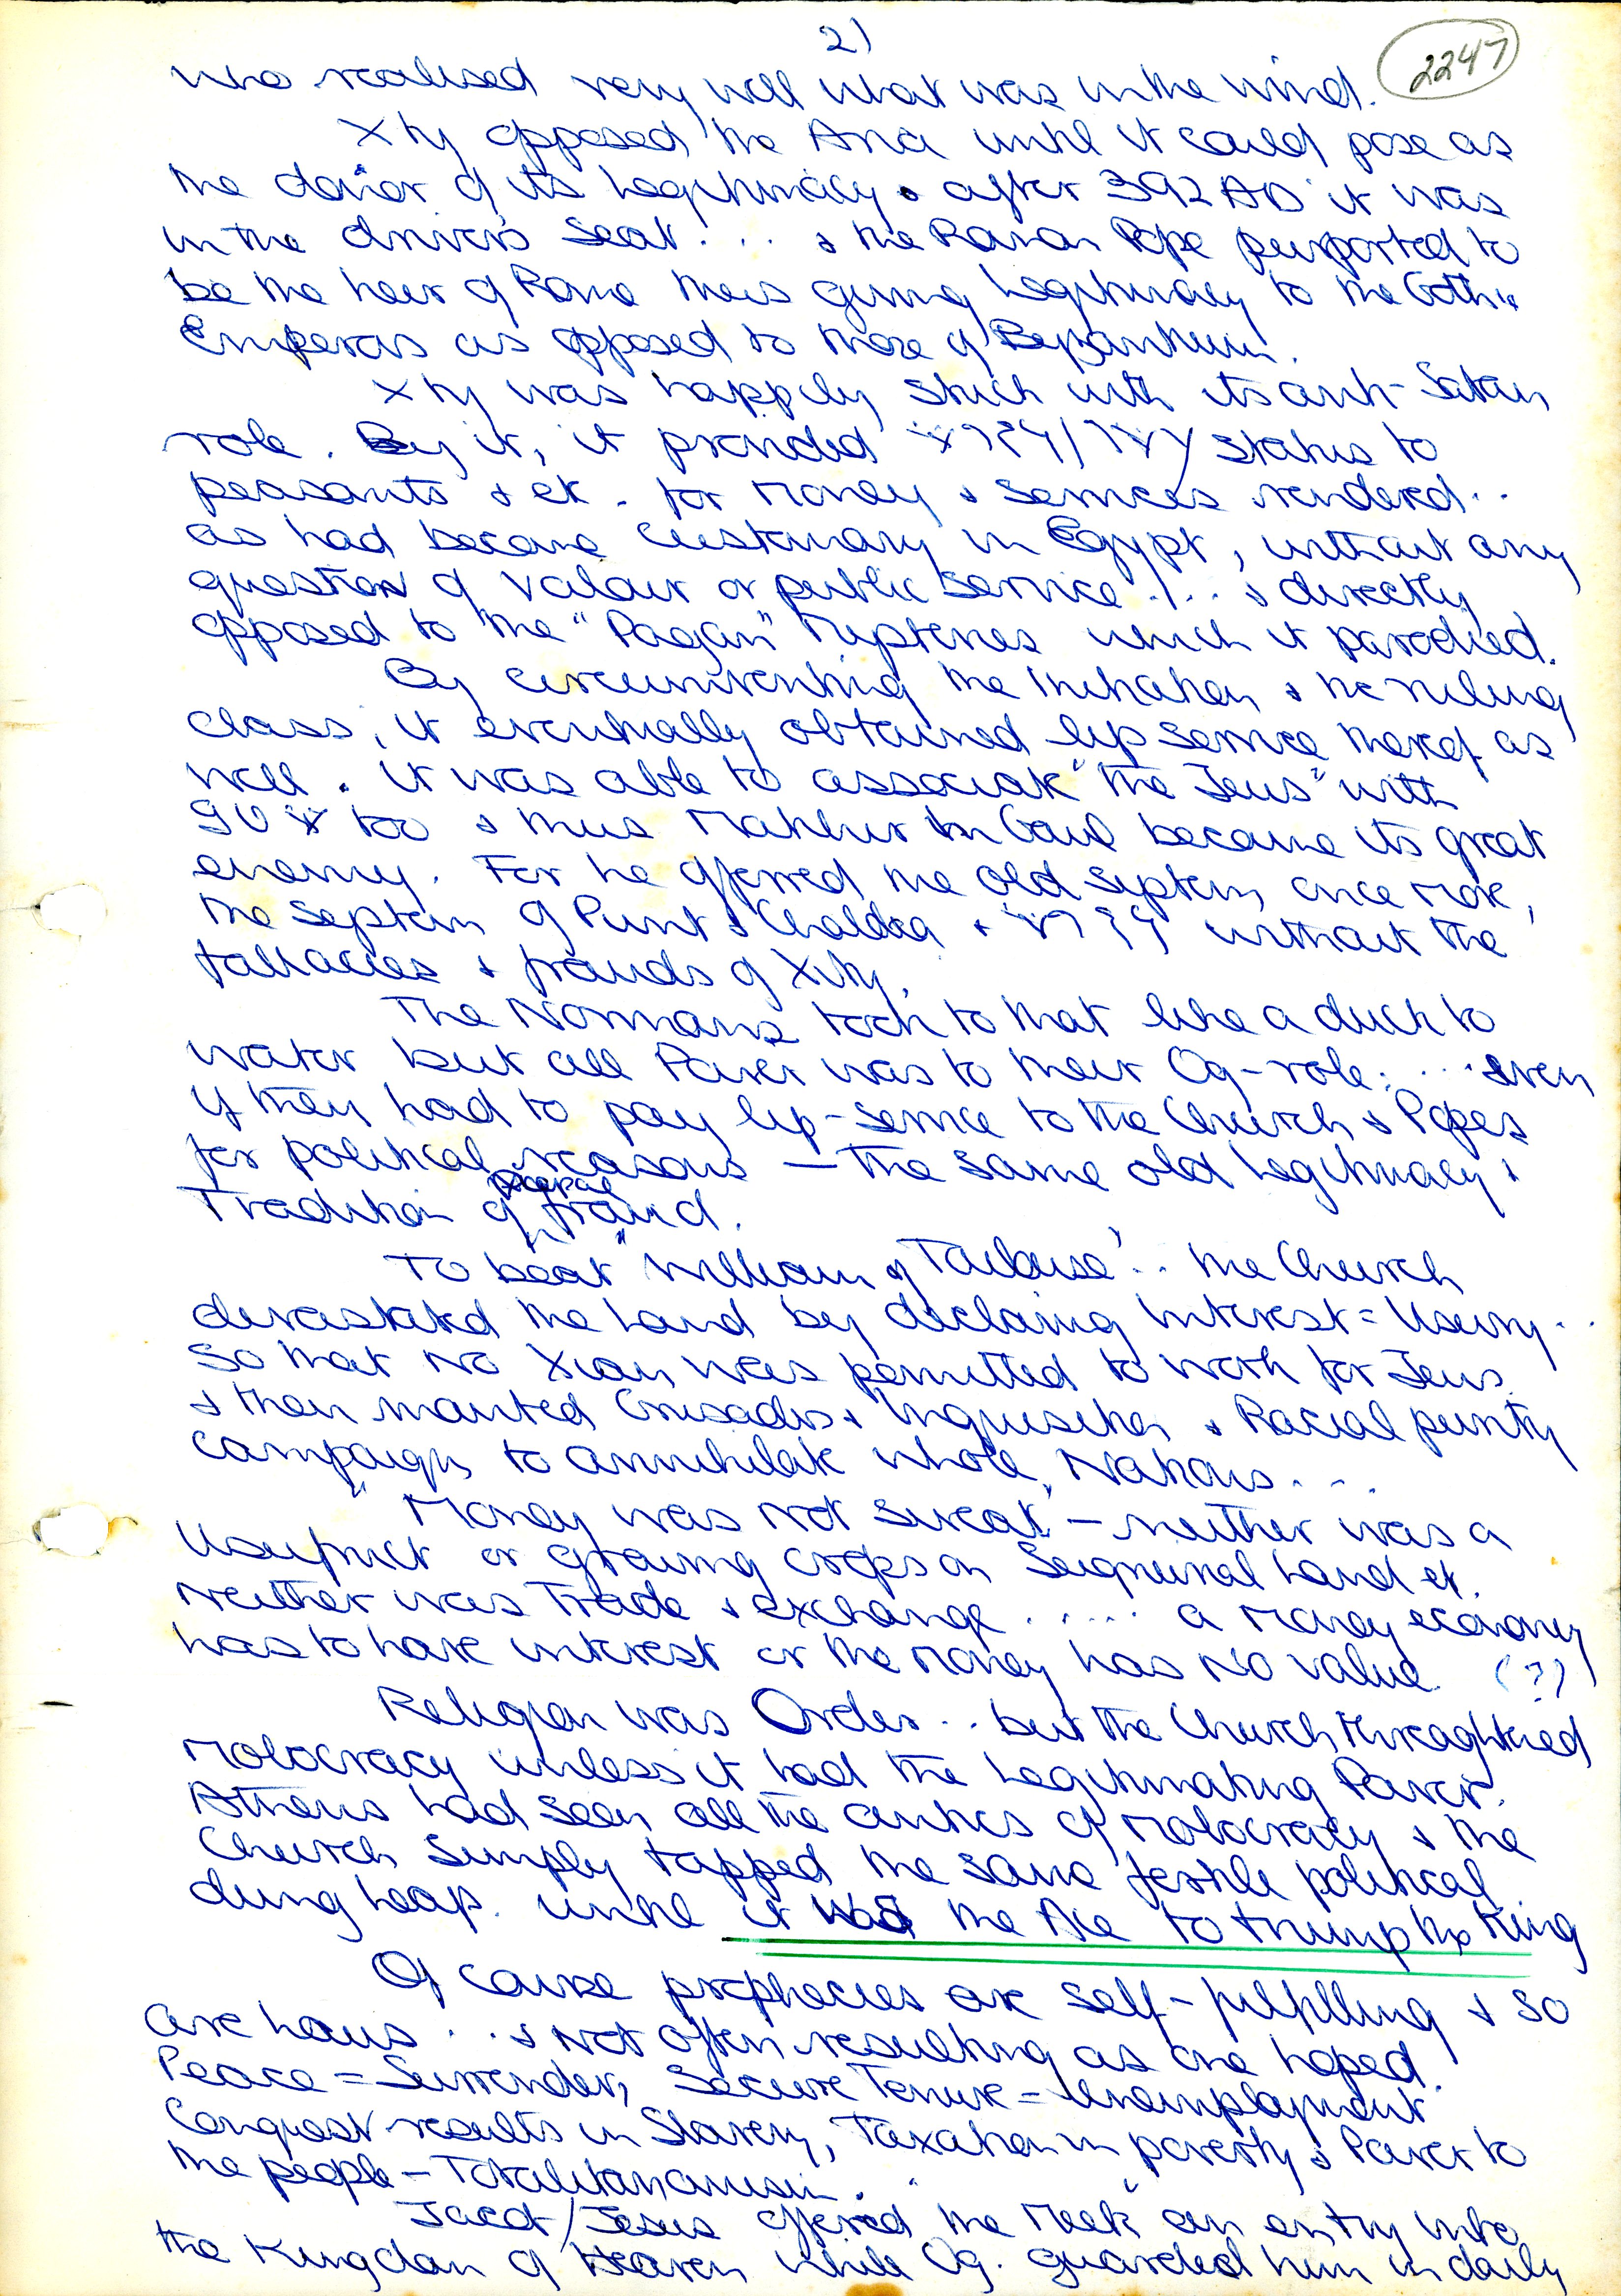 2)
2247
who realised very well what was in the wind.
Xty opposed the Aria until it could pose as
the donor of its Legitimacy & after 392 AD it was
in the drivers seat ... & the Roman Pope purported to
be the heir of Rome thus giving Legitimacy to the Gothic
Emperors as opposed to those of Byzantium.
Xty was happily stuck with its anti-Satan
role. By it, it provided status to
peasants & etc. for money & services rendered..
as had become customary in Egypt, without any
question of valour or public service! ... & directly
opposed to the "Pagan" Mysteries which it parodied.
By circumventing the initiation & the ruling
class, it eventually obtained lip service thereof as
well. It was able to associate "the Jews" with
too & thus in Gaul became its great
enemy. For he offerred the old system once more,
the system of Punt & Chaldea & without the
fallacies & frauds of Xity.
The Normans took to that like a duck to
water but all Power was to their Og-role: ... even
if they had to pay lip-service to the Church & Popes
for political reasons — the same old Legitimacy &
Tradition of papal fraud.
To beat "William of Toulouse".. the Church
devastated the Land by declaring Interest = Usury..
So that No Xian was permitted to work for Jews
& then mounted Crusades & Inquisition & Racial purity
campaigns to annihilate whole Nations...
"Money was not sweat" — neither was a
Usufruct or growing crops on Seigneurial Land etc.
Neither was Trade & exchange ..... a Money economy
has to have interest or the money has no value. (?)
Religion was Order .. but the Church threaghtened
Mobocracy unless it had the Legitimating Power.
Athens had seen all the antics of Mobocracy & the
Church simply tapped the same fertile political
dung heap. until it was the Ace to trump the King
Of course prophecies are self-fulfilling & so
are laws .. & not often resulting as one hoped.
Peace = Surrender, Secure Tenure = Unemployment
Conquest results in Slavery, Taxation in poverty & Power to
the people — Totalitarianism.
Jacob/Jesus offered "the Meek" an entry into
the Kingdom of Heaven while Og. guarded him in daily